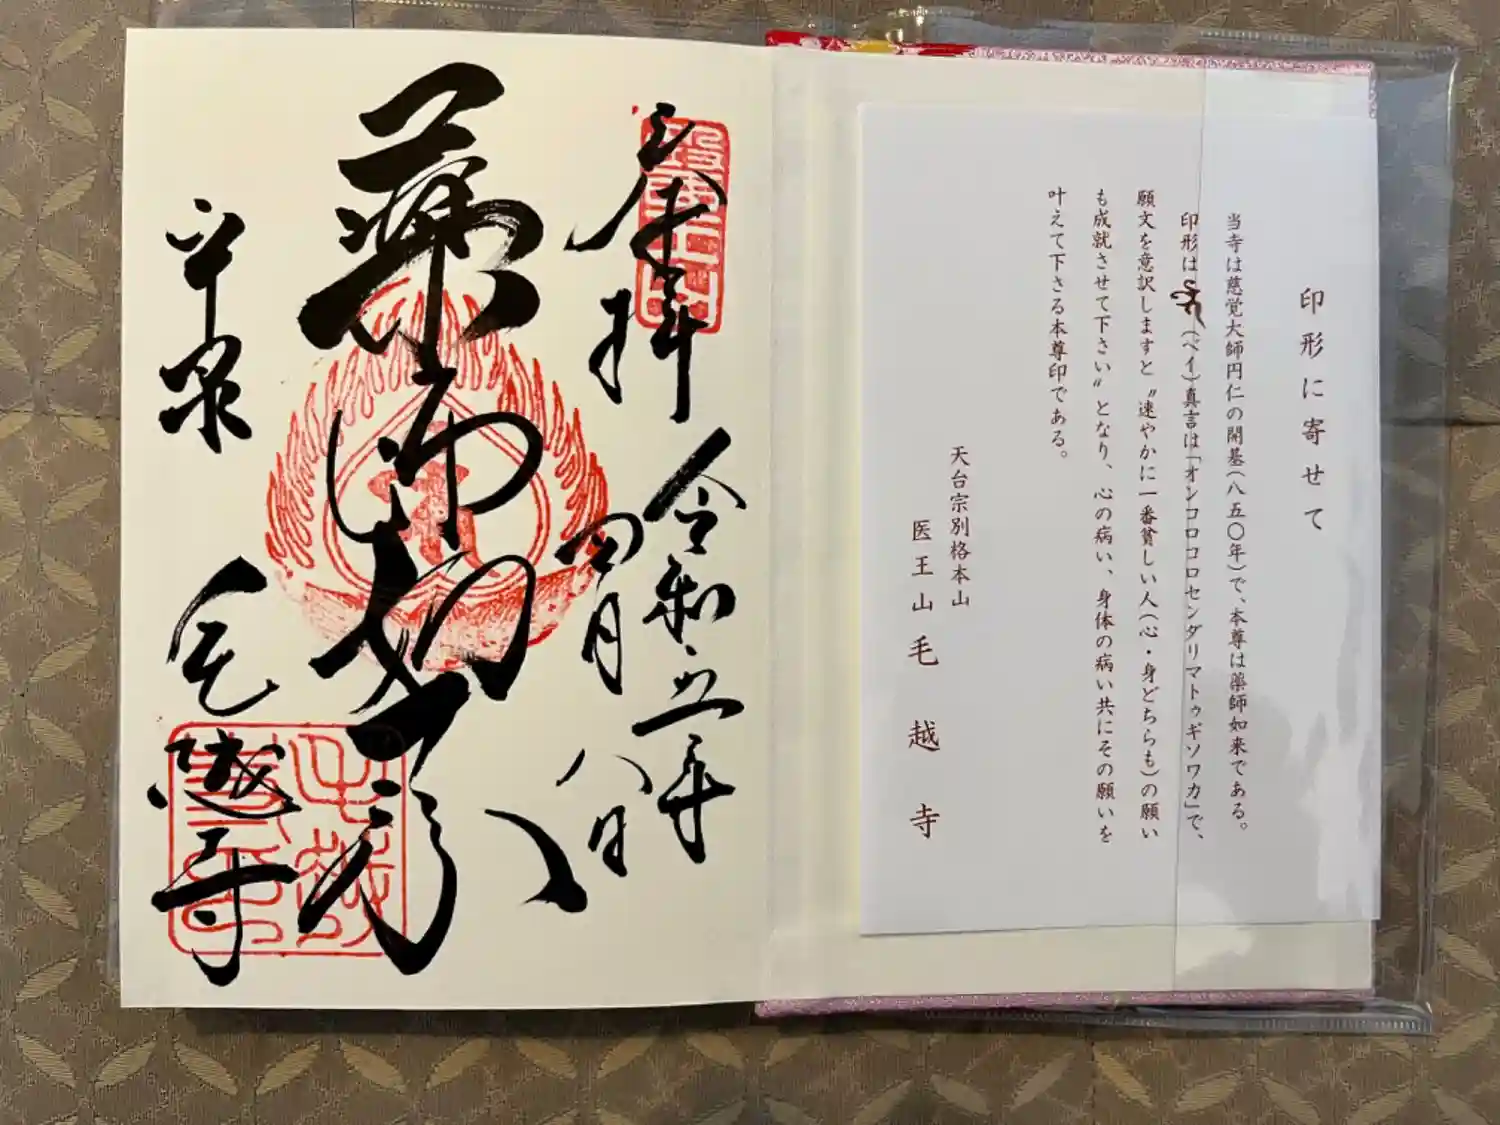 印形に寄せて
当寺は慈覚大師円仁の開基(八五〇年)で、本尊は薬師如来である。
印形は(ベイ)真言は「オンコロコロセンダリマトゥギソワカ」で、
願文を意訳しますと〝速やかに一番貧しい人(心・身どちらも)の願い
も成就させて下さい〟となり、心の病い、身体の病い共にその願いを
叶えて下さる本尊印である。
天台宗別格本山
医王山毛越寺
奉拝
令和五年
四月八日
薬師如来
平泉
毛越寺